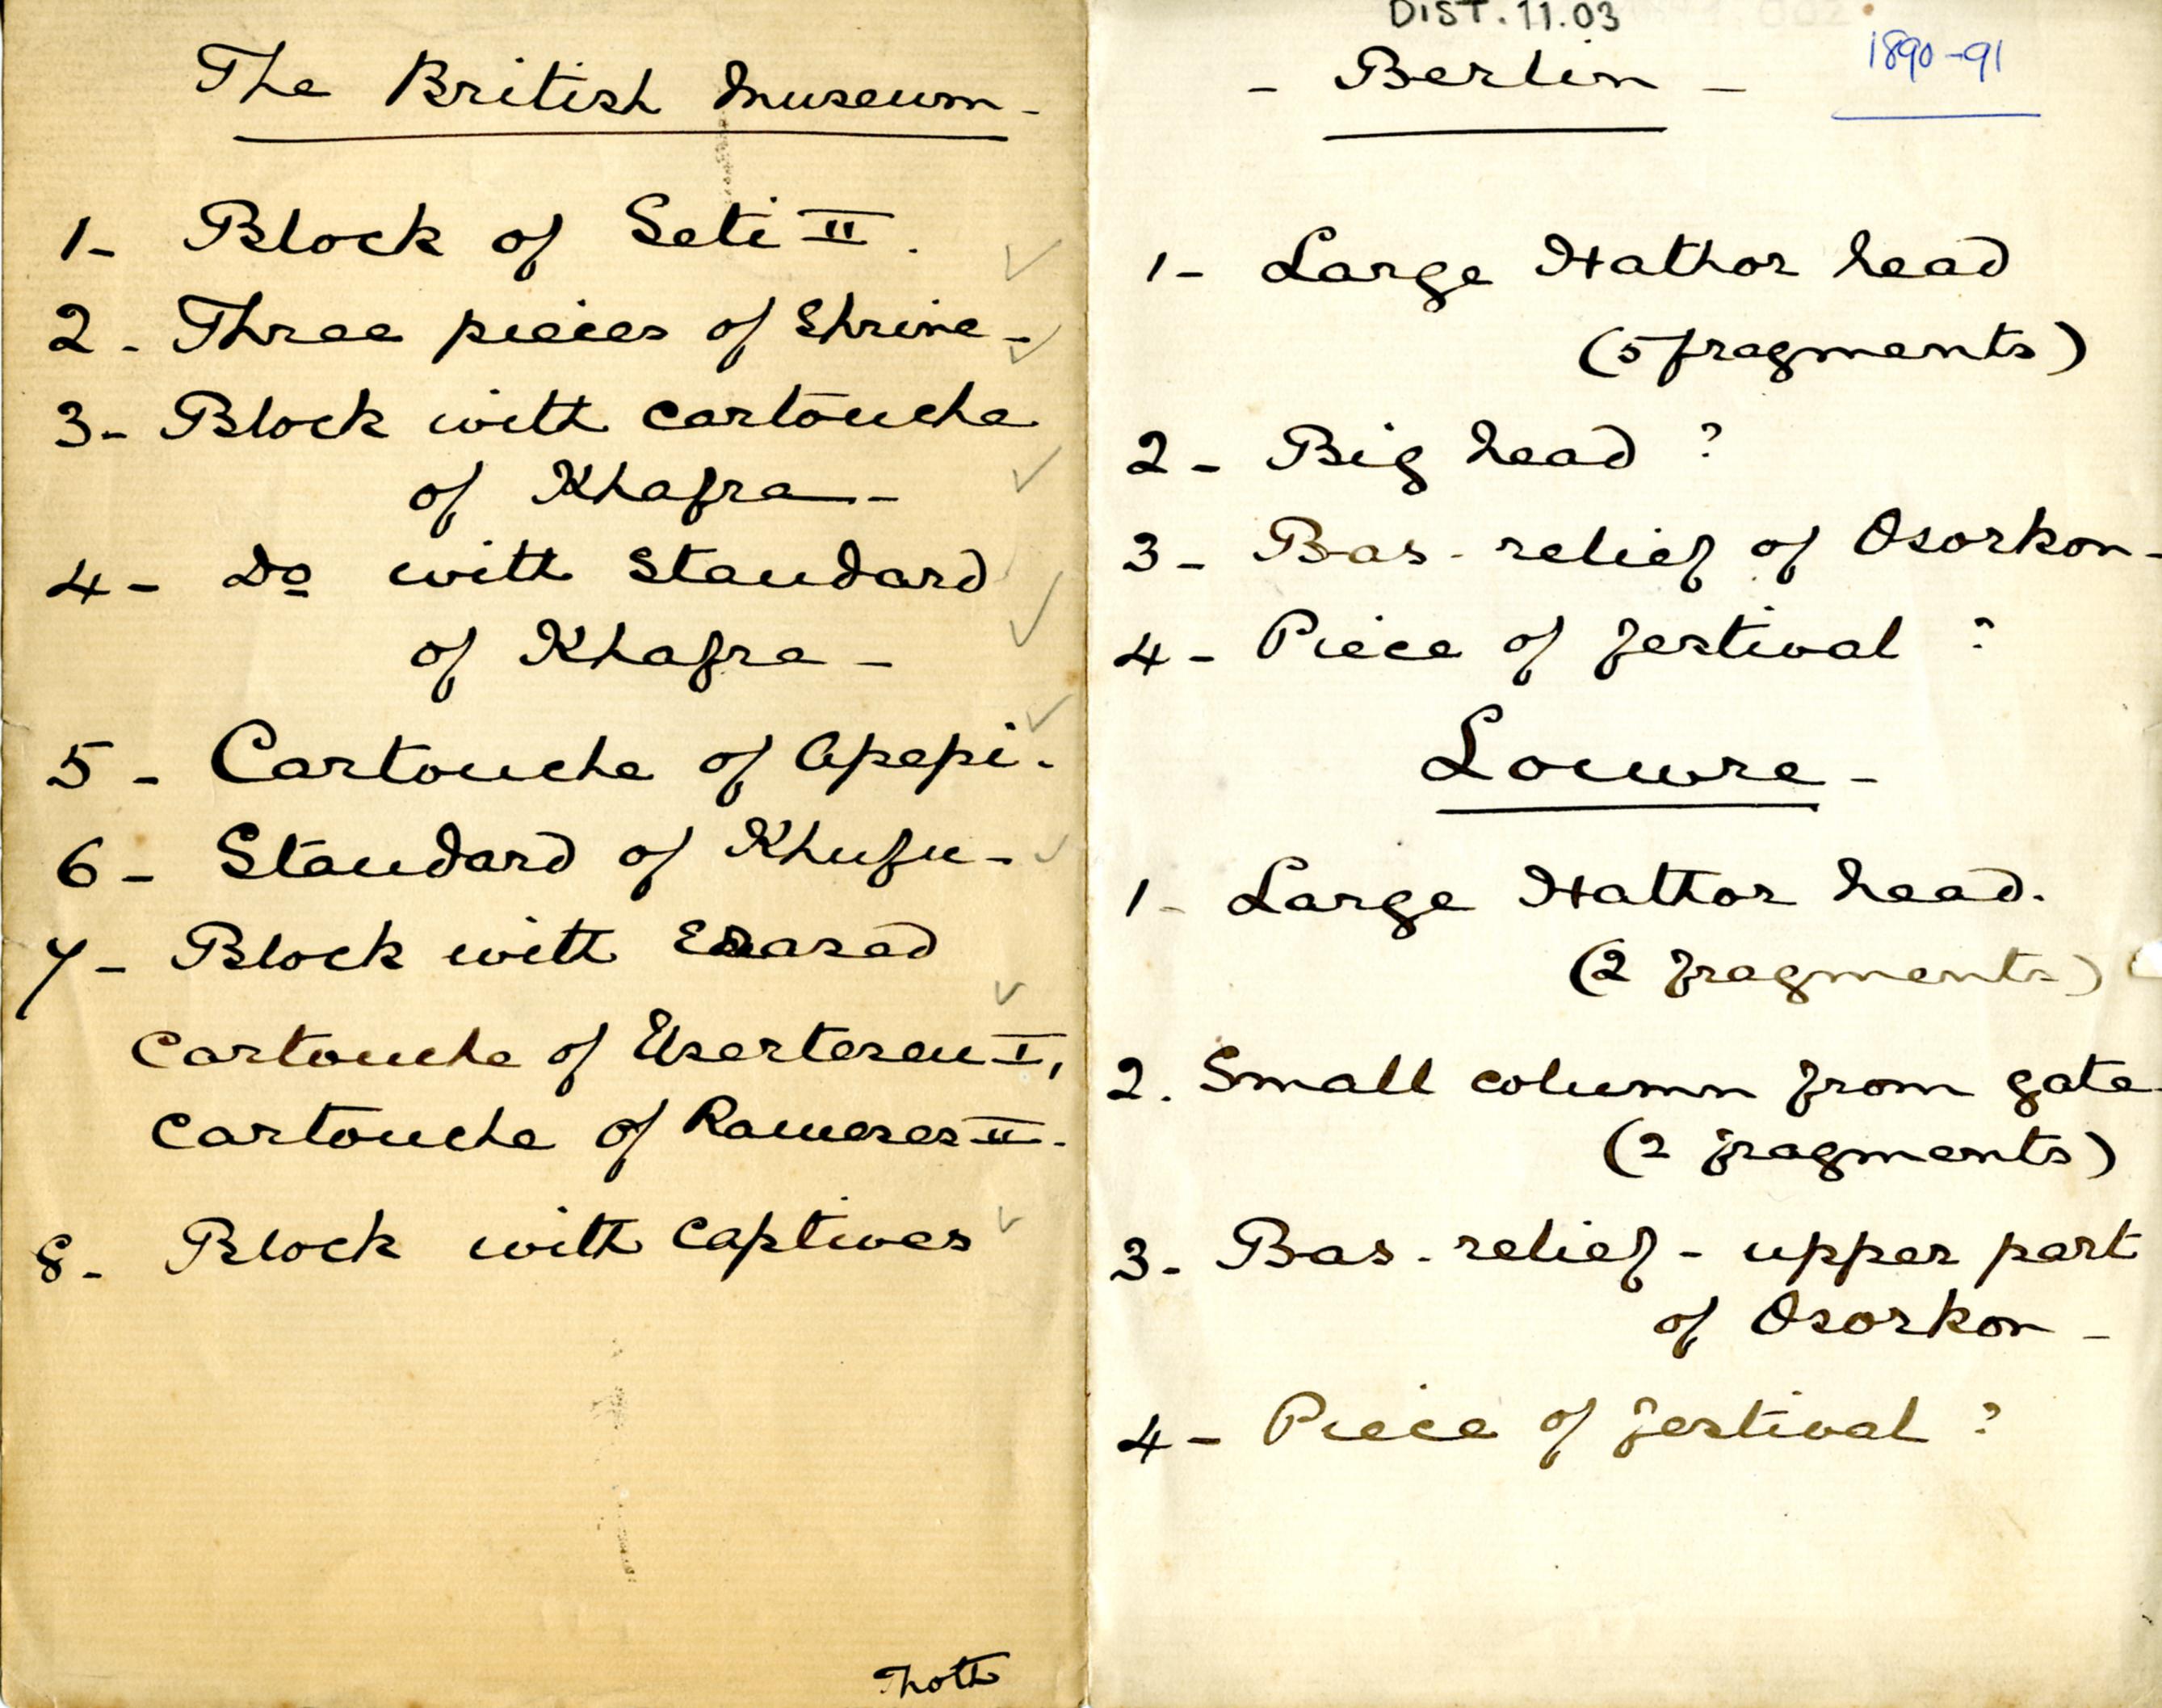 The British Museum -
1- Block of Seti II.
2- Three pieces of Shrine -
3- Block with cartouche
of Khafra -
4- Do with Standard
of Khafra -
5- Cartouche of Apepi.
6- Standard of Khufu -
7- Block with Erased
cartouche of Usertesen I,
cartouche of Rameses II.
8- Block with captives
Thoth
DIST. 11.03
- Berlin -
1890-91
1- Large Hathor head
(5 fragments)
2- Big head ?
3- Bas-relief of Osorkon -
4- Piece of festival ?
Louvre -
1- Large Hathor head.
(2 fragments)
2. Small column from gate
(2 fragments)
3- Bas-relief - upper part
of Osorkon -
4- Piece of festival ?